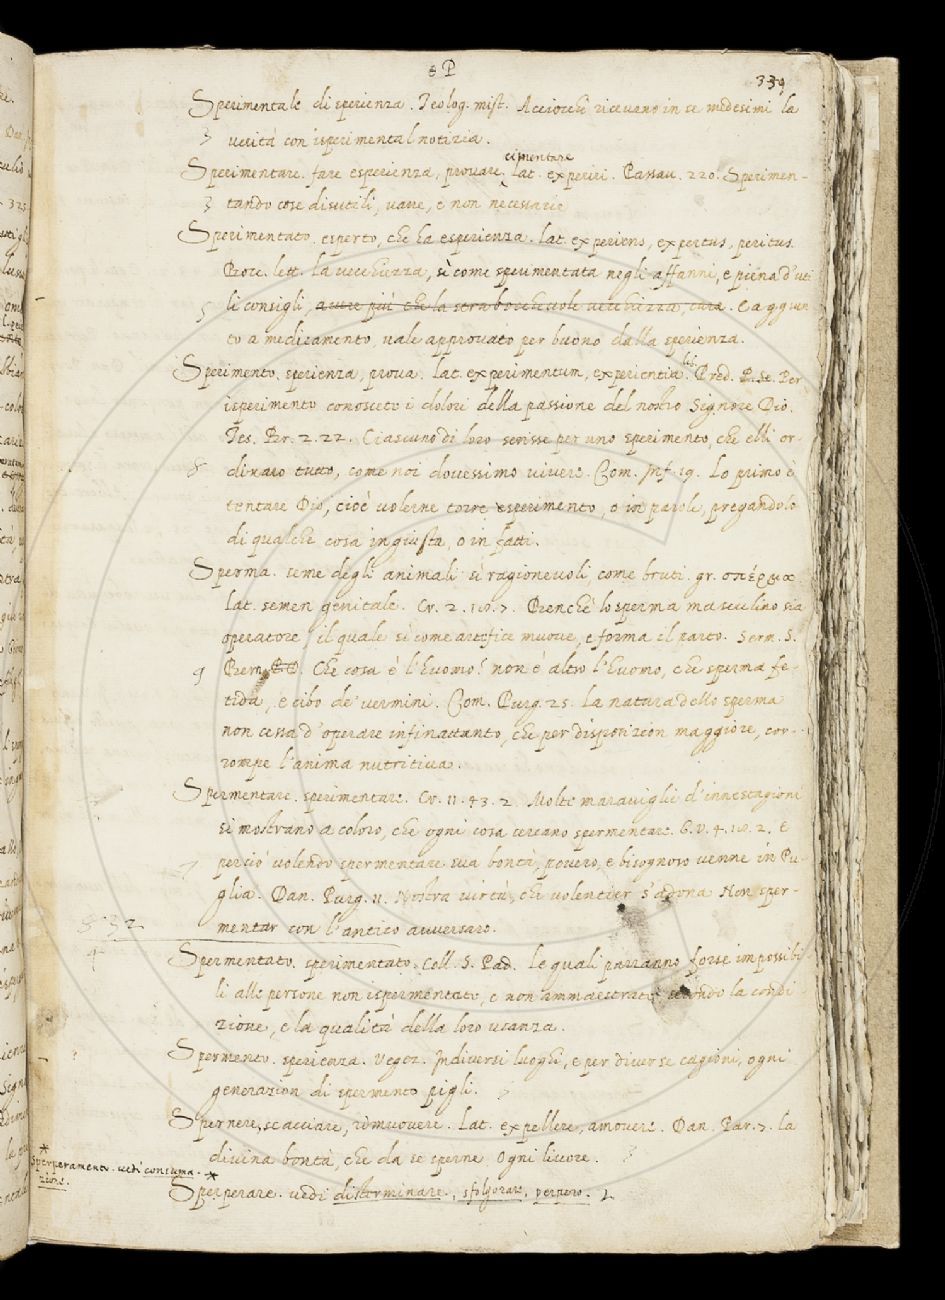 SP
339
Sperimentale di sperienza. Teolog. mist. Acciochè ricevano in se medesimi la
3 verità con isperimental notizia.
cimentare
Sperimentare. fare esperienza, provare, lat. experiri. Passau. 220. Sperimen-
3 tando cose disutili, vane, e non necessarie
Sperimentato. esperto, che ha esperienza. lat. experiens, expertus, peritus.
lett. la vecchiezza, sì come sperimentata negli affanni, è piena d'uti
5 li consigli, avere più che la strabocchevole vecchiezza, cura. E aggiun
to a medicamento, vale approvato per buono dalla sperienza.
Sperimento. sperienza, prova. lat. experimentum, experientia. Pred. Per
isperimento conosceto i dolori della passione del nostro Signore Dio.
Tes. Br. 2. 22. Ciascuno di loro scrisse per uno sperimento, che elli or-
5 dinaro tutto, come noi dovessimo vivere. Com. Inf. 19. Lo primo è
tentare Dio, cioè volerne torre esperimento, o in parole, pregandolo
di qualche cosa ingiusta, o in fatti.
Sperma. seme degli animali sì ragionevoli come bruti. gr. σπέρμα.
lat. semen genitale. Cr. 2. 10. 7. Benchè lo sperma masculino sia
operatore, il quale sì come artefice muove, e forma il parto. Serm. S.
9 Bern. Che cosa è l'huomo? non è altro l'huomo, che sperma fe-
tida, e cibo de' vermini. Com. Purg. 25. la natura dello sperma
non cessa d'operare infinattanto, che per disposizion maggiore, cor-
rompe l'anima nutritiva.
Spermentare. sperimentare. Cr. 11. 43. 2. Molte maraviglie d'innestagioni
si mostrano a coloro, che ogni cosa cercano spermentare. G. V. 4. 18. 2. e
7 perciò volendo spermentare sua bontà, povero, e bisognoso venne in Pu-
glia. Dan. Purg. 11. Nostra virtù, che volentier s'adona Non sper-
mentar con l'antico avversaro.
532
9
Spermentato. sperimentato. Coll. S. Pad. le quali parranno forse impossibi-
li alle persone non ispermentate, e non ammaestrate secondo la condi-
zione, e la qualità della loro usanza.
Spermento. sperienza. Veget. In diversi luoghi, e per diverse cagioni, ogni
generazion di spermento pigli.
Spernere, scacciare, rimuovere. lat. expellere, amovere. Dan. Par. 7. la
divina bontà, che da se sperne Ogni livore.
* Sperperamento. vedi consuma-
zione. *
Sperperare. vedi disterminare, sfolgorare, perpero. 2